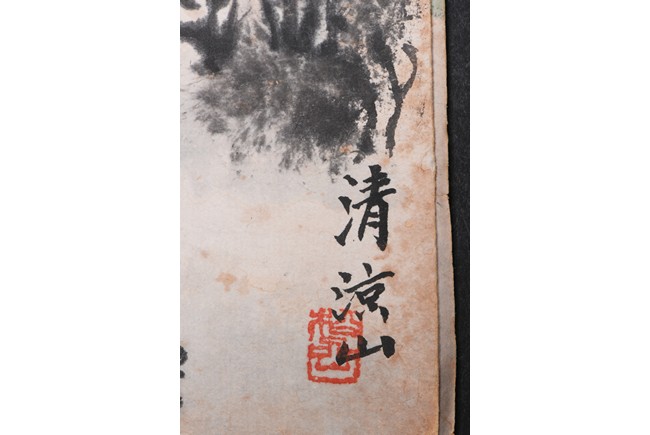 清涼山